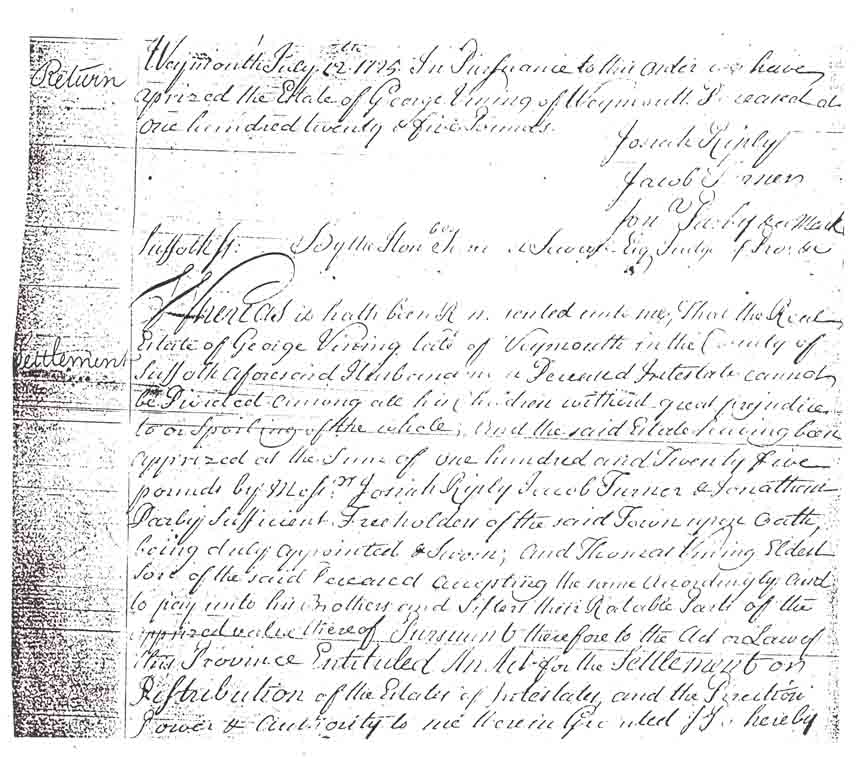 Return
Weymouth July 12th 1725. In Pursuance to this order we have
aprized the Estate of George Vining of Weymouth Deceased at
one hundred twenty & five Pounds.
Josiah Riply
Jacob Turner
Jon Darby his Mark
Suffolk ss: By the Honble Sewall Esq Judge of Probate
Settlement
Whereas it hath been Represented unto me, That the Real
Estate of George Vining late of Weymouth in the County of
Suffolk aforesaid Husbandman Deceased Intestate cannot
be Divided among all his Children without great prejudice
to or Spoiling of the whole; And the said Estate having been
apprized at the Sum of one hundred and Twenty five
pounds by Messrs Josiah Riply Jacob Turner & Jonathan
Darby Sufficient Freeholders of the said Town upon Oath,
being duly appointed & Sworn; and Thomas Vining Eldest
Son of the said Deceased accepting the same accordingly and
to pay unto his Brothers and Sisters their Ratable Parts of the
apprized value thereof Pursuant therefore to the Act or Law of
this Province Entituled An Act for the Settlement or
Distribution of the Estates of Intestates, and the Direction
Power & Authority to me therein Granted I Do hereby